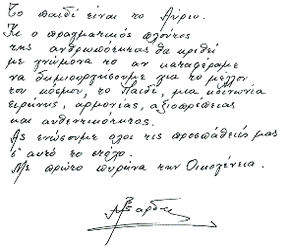 Το παιδί είναι το Αύριο.
Κι ο πραγματικός πλούτος
της ανθρωπότητας θα κριθεί
με γνώμονα το αν καταφέραμε
να δημιουργήσουμε για το μέλλον
του κόσμου, το Παιδί, μια κοινωνία
ειρήνης, αρμονίας, αξιοπρέπειας
και αυθεντικότητας.
Ας ενώσουμε όλοι τις προσπάθειές μας
σ' αυτό το στόχο.
Με πρώτο πυρήνα την Οικογένεια.